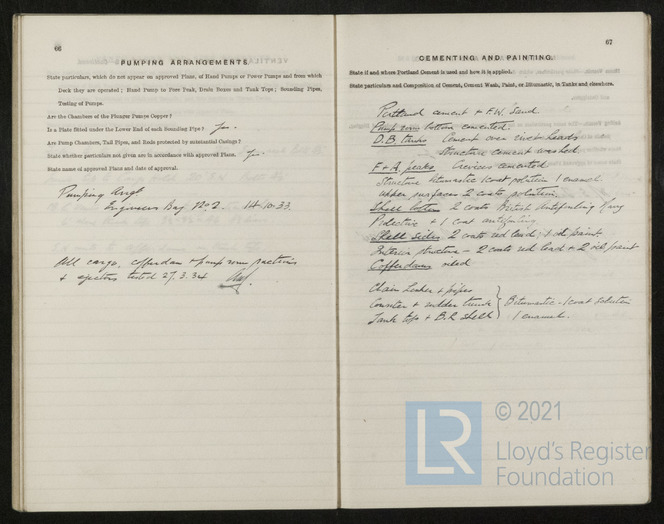 66
PUMPING ARRANGEMENTS
State particulars, which do not appear on approved Plans, of Hand Pumps or Power Pumps and from which
Deck they are operated; Hand Pump to Fore Peak, Drain Boxes and Tank Tops; Sounding Pipes,
Testing of Pumps.
Are the Chambers of the Plunger Pumps Copper?
Is a Plate fitted under the Lower End of each Sounding Pipe? Yes.
Are Pump Chambers, Tail Pipes, and Rods protected by substantial Casings?
State whether particulars not given are in accordance with approved Plans. Yes.
State name of approved Plans and date of approval.
Pumping Arrgt
Engineers Bag No 2. 14.10.33
All cargo, cofferdam & pump room suctions
& ejectors tested 27.3.34
67
CEMENTING AND PAINTING.
State if and where Portland Cement is used and how it is applied.
State particulars and Composition of Cement, Cement Wash, Paint, or Bitumastic, in Tanks and elsewhere.
Portland cement & F.W. Sand.
Pump room bottom cemented.
D.B. tanks Cement over rivet heads
Structure cement washed
F & A. peaks Crevices cemented
Structure bitumastic 1 coat solution 1 enamel.
Upper surfaces 2 coats solution.
Shell bottom 2 coats British Antifouling
Protective & 1 coat antifouling.
Shell sides 2 coats red lead, 1 oil paint
Interior structure - 2 coats red lead & 2 oil paint
Cofferdams oiled
Chain locker & pipes
Counter & rudder trunk } Bitumastic - 1 coat solution
Tank top & B.R. shell 1 enamel.
LR
© 2021
Lloyd's Register
Foundation